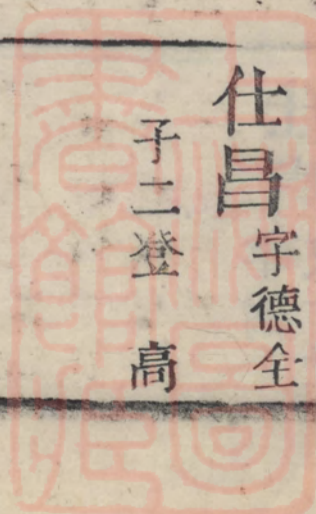 仕昌字德全
子二登　高